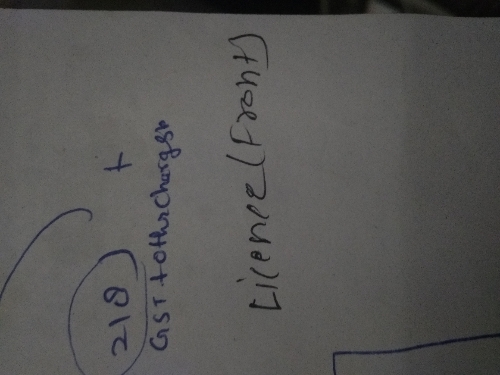 218 +
GST + Othr Charges
Licence (Front)